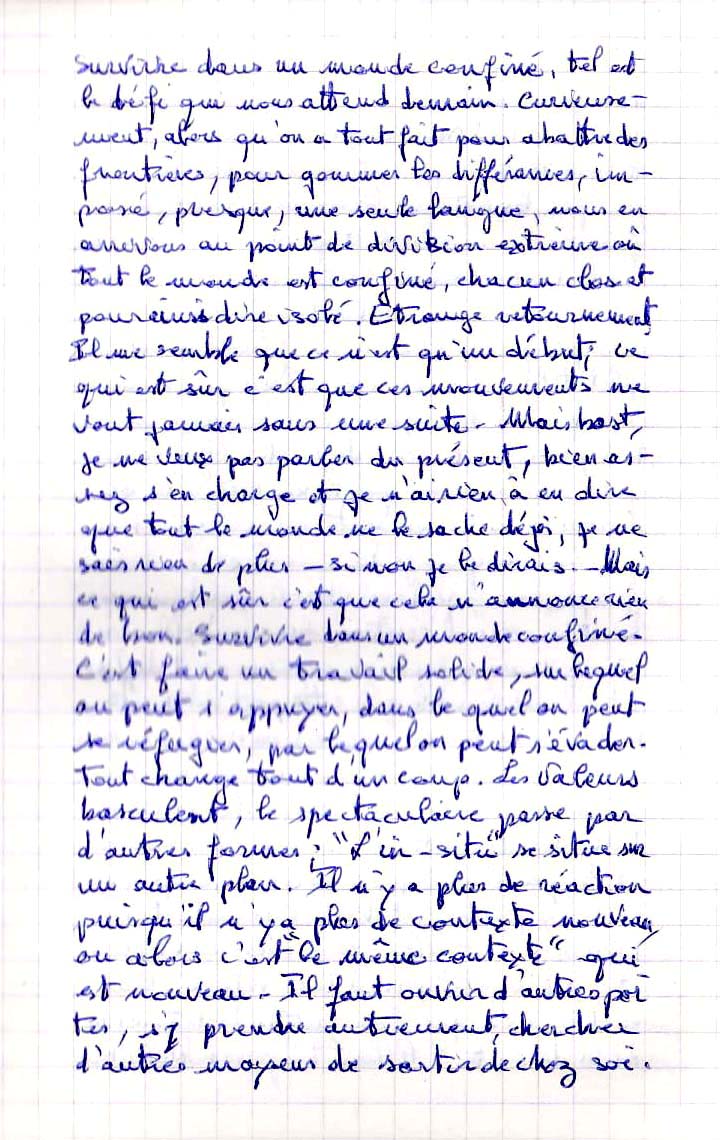 Survivre dans un monde confiné, tel est
le défi qui nous attend demain. Curieuse-
ment, alors qu'on a tout fait pour abattre des
frontières, pour gommer les différances, im-
posé, presque, une seule langue, nous en
arrivons au point de division extrême où
tout le monde est confiné, chacun clos et
pour ainsi dire isolé. Etrange retournement
Il me semble que ce n'est qu'un début, ce
qui est sûr c'est que ces mouvements ne
vont jamais sans une suite - Mais bast,
je ne veux pas parler du présent, bien as-
sez s'en charge et je n'ai rien à en dire
que tout le monde ne le sache déjà, je ne
sais rien de plus - sinon je le dirais. - Mais
ce qui est sûr c'est que cela n'annonce rien
de bon. Survivre dans un monde confiné.
C'est faire un travail solide, sur lequel
on peut s'appuyer, dans le quel on peut
se réfugier, par lequel on peut s'évader.
Tout change tout d'un coup. Les valeurs
basculent, le spectaculaire passe par
d'autres formes ; "L'in-situ" se situe sur
un autre plan. Il n'y a plus de réaction
puisqu'il n'y a plus de contexte nouveau,
ou alors c'est "le même contexte" qui
est nouveau - Il faut ouvrir d'autres por
tes, s'y prendre autrement, chercher
d'autres moyens de sortir de chez soi.